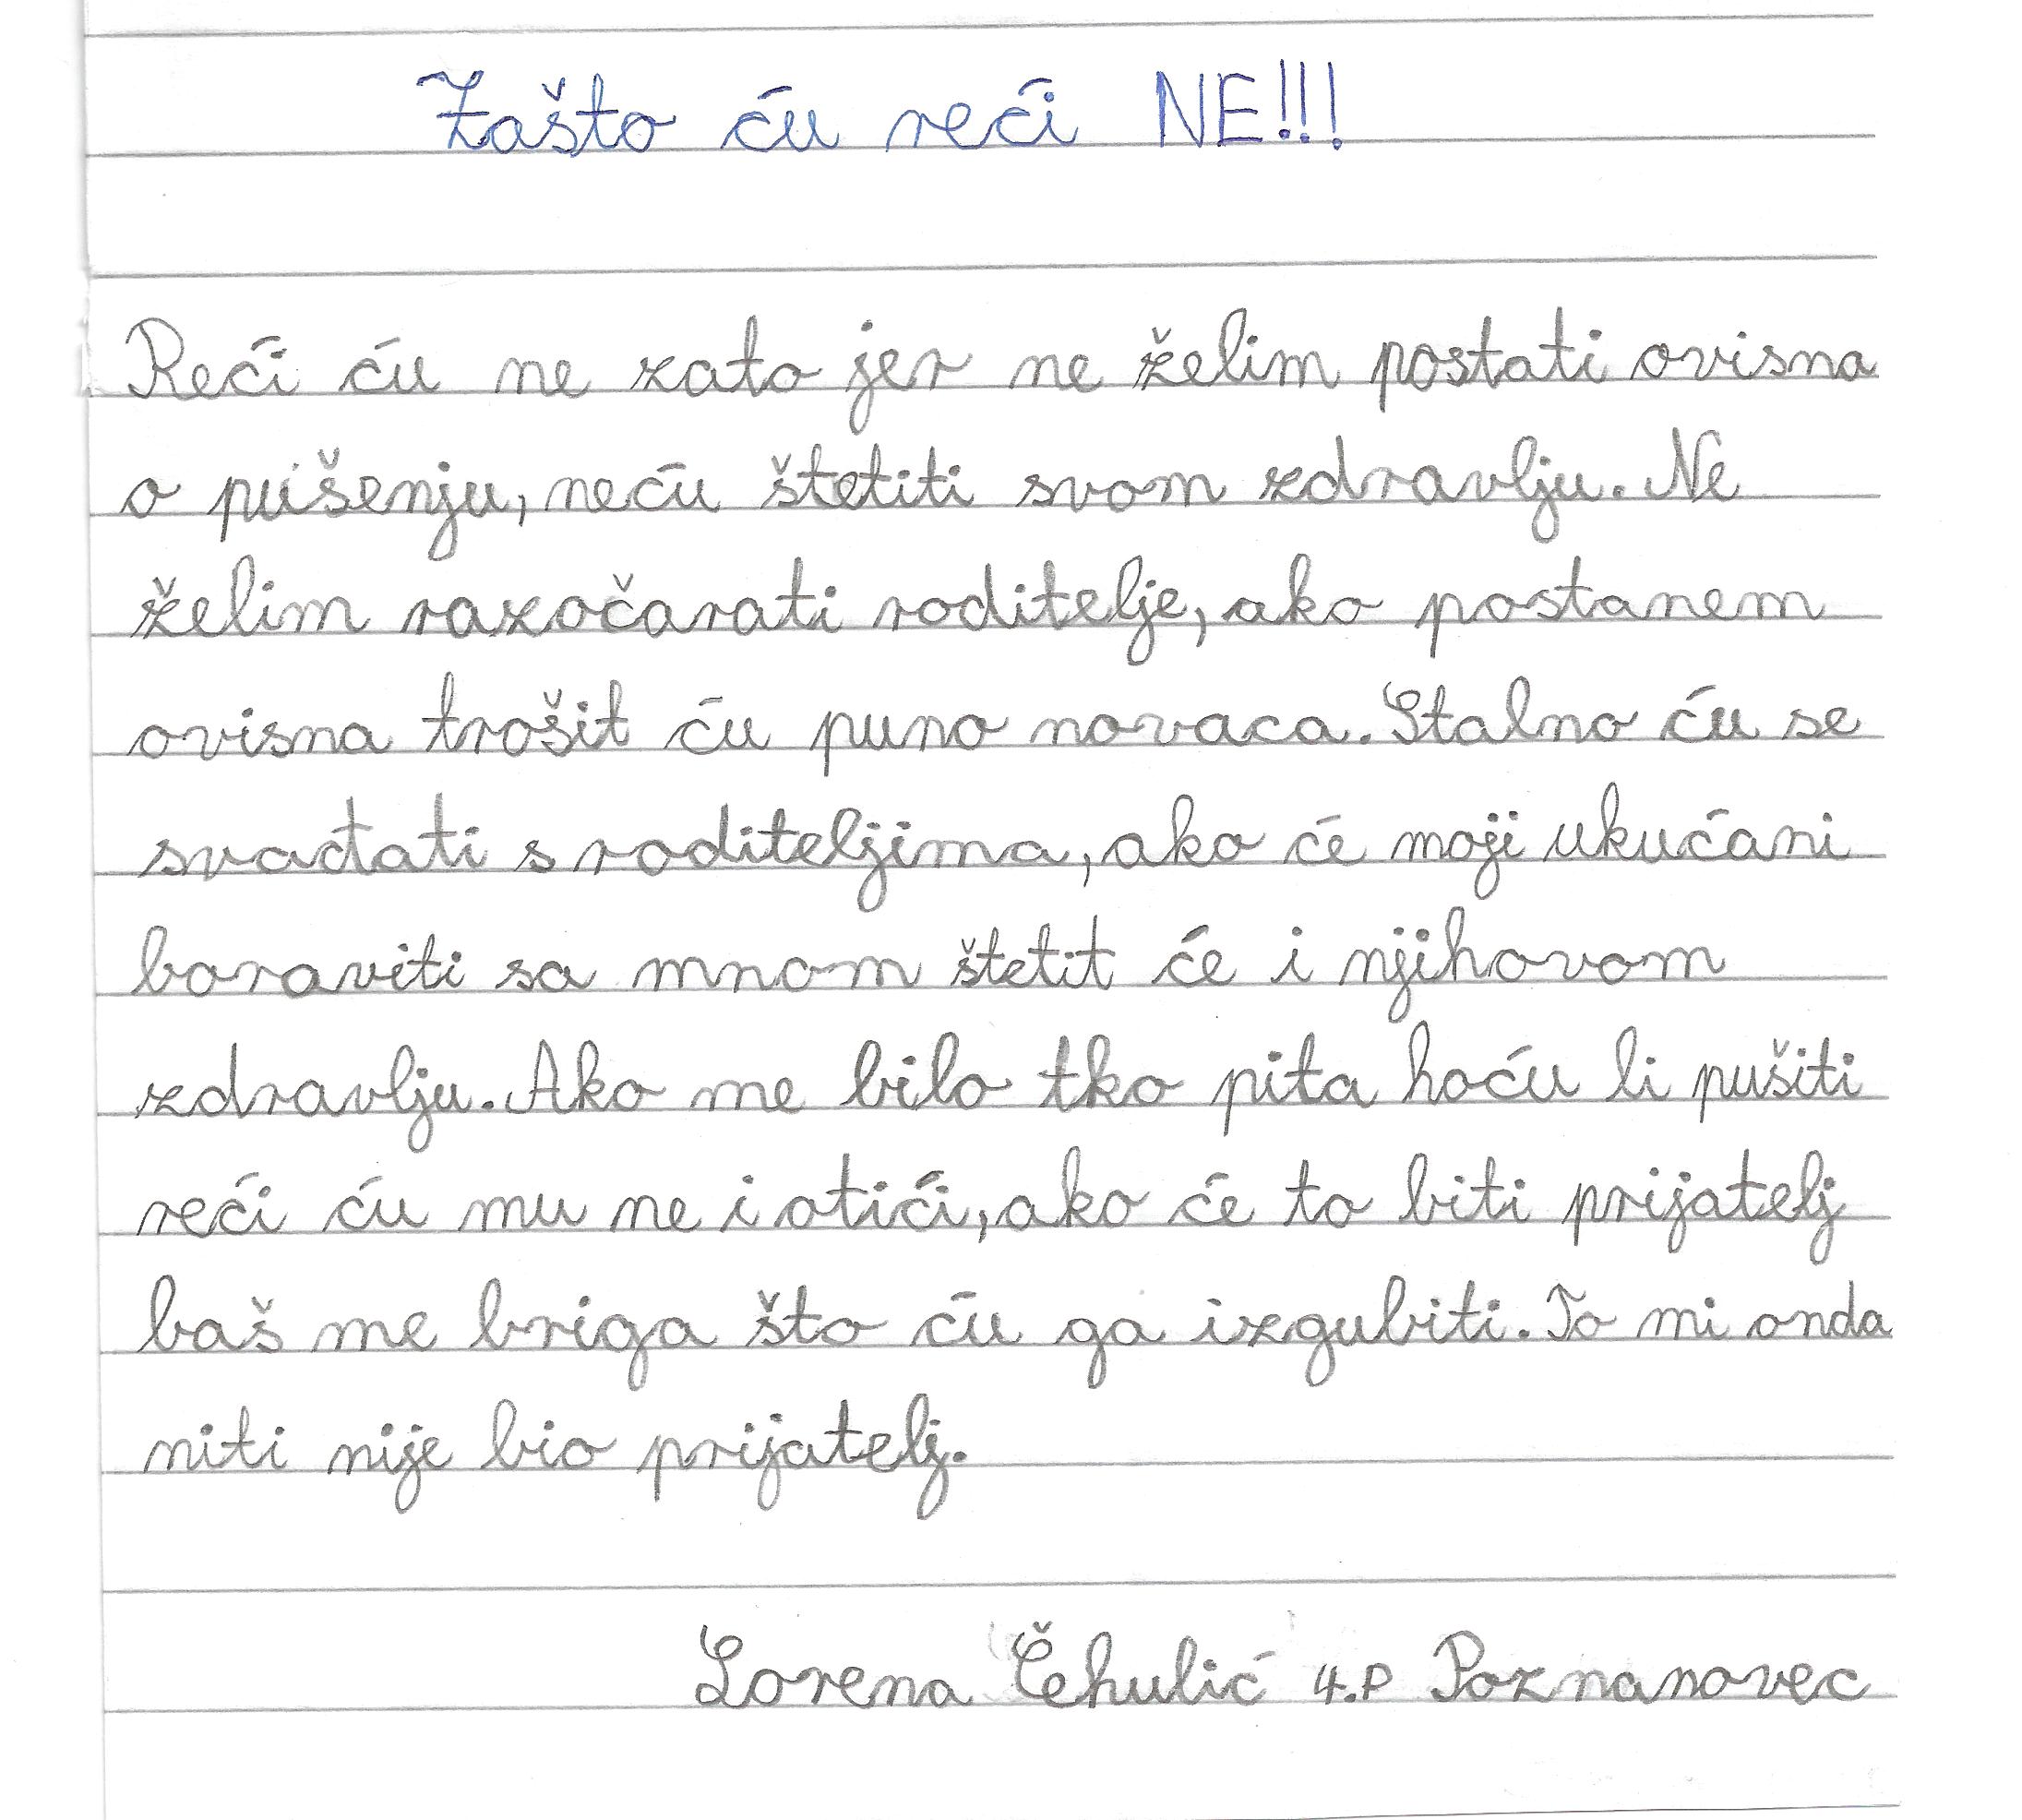 Zašto ću reći NE!!!
Reći ću ne zato jer ne želim postati ovisna
o pušenju, neću štetiti svom zdravlju. Ne
želim razočarati roditelje, ako postanem
ovisna trošit ću puno novaca. Stalno ću se
svađati s roditeljima, ako će moji ukućani
boraviti sa mnom štetit će i njihovom
zdravlju. Ako me bilo tko pita hoću li pušiti
reći ću mu ne i otići, ako će to biti prijatelj
baš me briga što ću ga izgubiti. To mi onda
niti nije bio prijatelj.
Lorena Čehulić 4.P Poznanovec